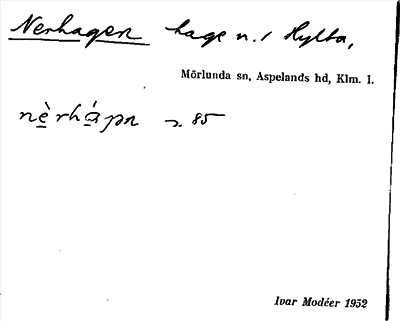 Nerhagen hage n. / Hylta,
Mörlunda sn, Aspelands hd, Klm. l.
85
Ivar Modéer 1952